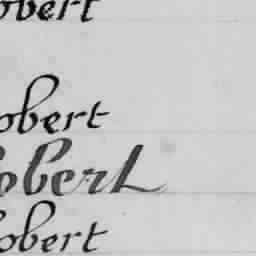 obert
obert
obert
obert